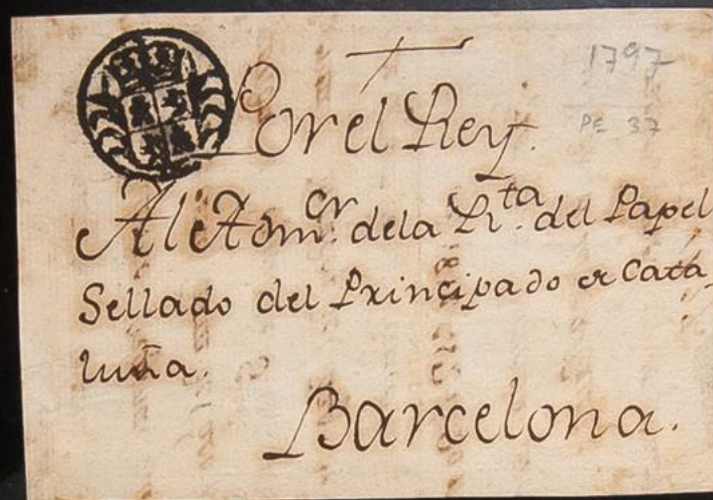 1797
PE 37
Por el Rey.
Al Adm.or dela R.ta del Papel
Sellado del Principado de Cata
luña.
Barcelona.